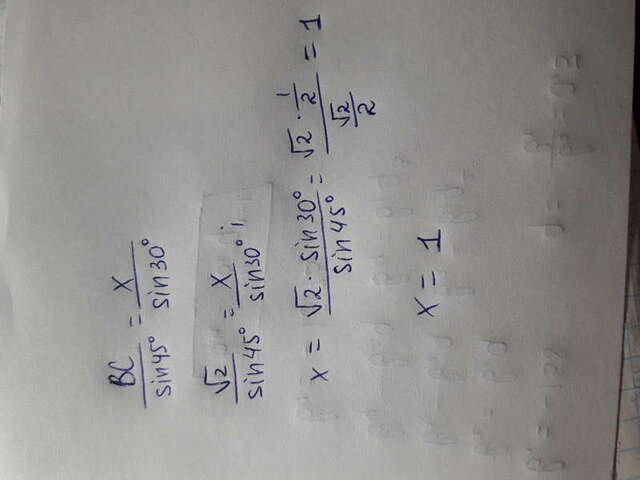 BC/sin45° = x/sin30°
√2/sin45° = x/sin30° ;
x = √2 · sin30°/sin45° = (√2 · 1/2)/(√2/2) = 1
x = 1